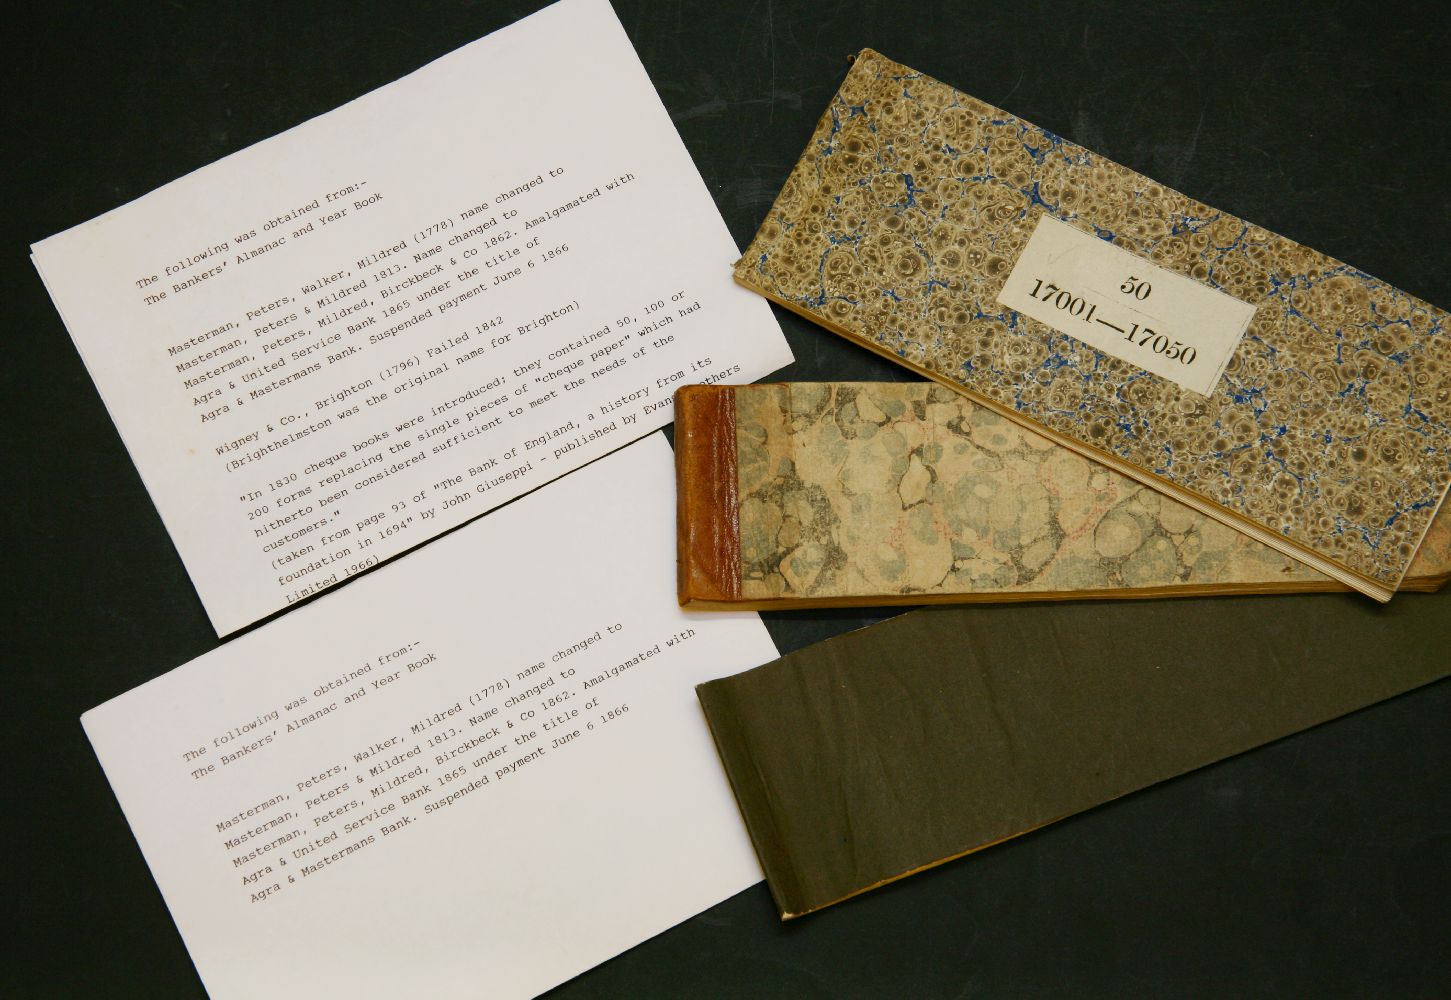 The following was obtained from:-
The Bankers' Almanac and Year Book
Masterman, Peters, Walker, Mildred (1778) name changed to
Masterman, Peters & Mildred 1813. Name changed to
Masterman, Peters, Mildred, Birckbeck & Co 1862. Amalgamated with
Agra & United Service Bank 1865 under the title of
Agra & Mastermans Bank. Suspended payment June 6 1866
Wigney & Co., Brighton (1796) Failed 1842
(Brighthelmston was the original name for Brighton)
"In 1830 cheque books were introduced; they contained 50, 100 or
200 forms replacing the single pieces of "cheque paper" which had
hitherto been considered sufficient to meet the needs of the
customers."
(taken from page 93 of "The Bank of England, a history from its
foundation in 1694" by John Giuseppi - published by Evans others
Limited 1966)
The following was obtained from:-
The Bankers' Almanac and Year Book
Masterman, Peters, Walker, Mildred (1778) name changed to
Masterman, Peters & Mildred 1813. Name changed to
Masterman, Peters, Mildred, Birckbeck & Co 1862. Amalgamated with
Agra & United Service Bank 1865 under the title of
Agra & Mastermans Bank. Suspended payment June 6 1866
50
17001—17050